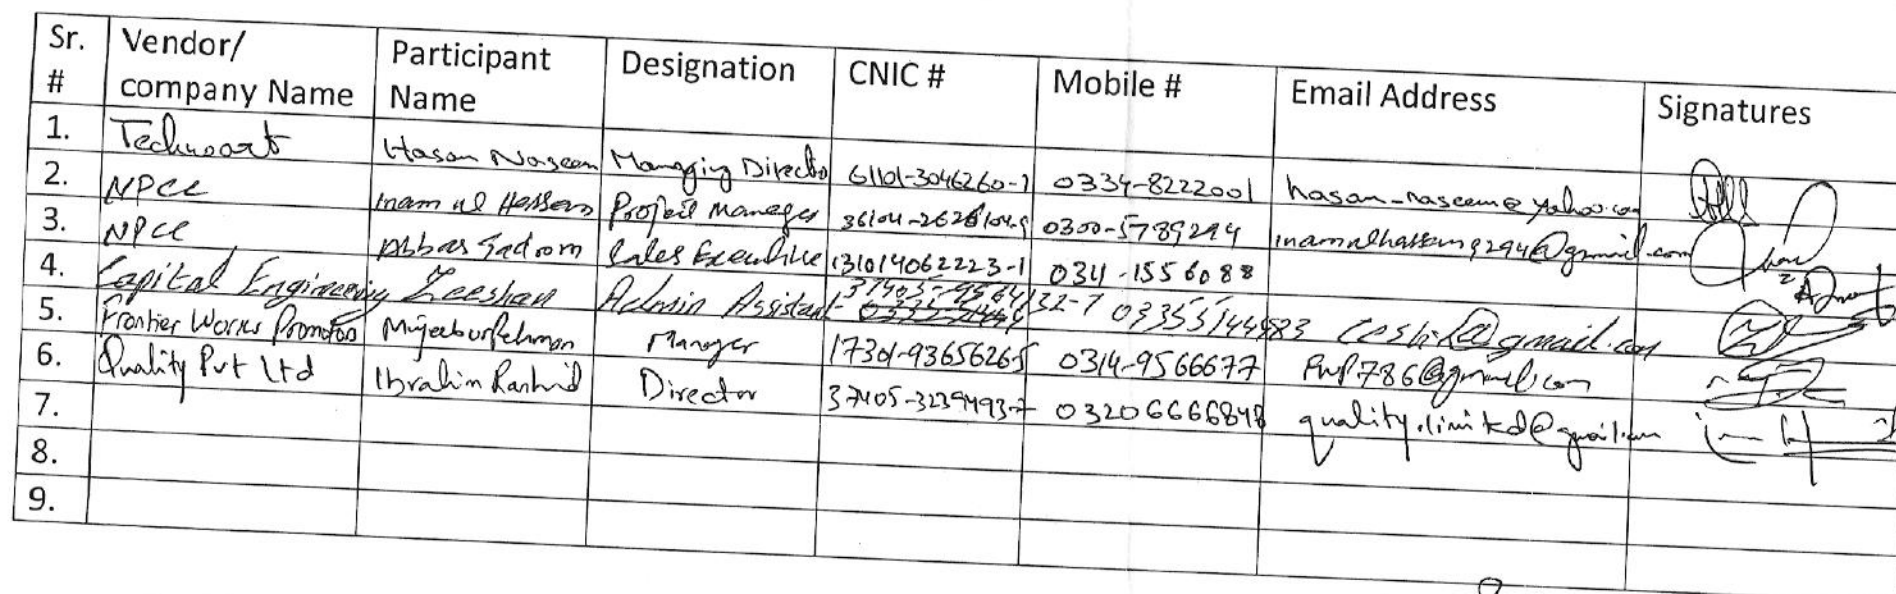 Sr. # Vendor/ company Name Participant Name Designation CNIC # Mobile # Email Address Signatures
1. Technoart Hasan Naseem Managing Director 61101-3046260-1 0334-8222001 hasan-naseem@yahoo.com
2. NPCC Inam ul Hassan Project Manager 0300-5789294 inamulhassan9294@gmail.com
3. NPCC Abbas Sales Executive 131014062223-1 0341-1556088
4. Capital Engineering Zeeshan Admin Assistant 03355144983 @gmail.com
5. Frontier Works Promoters Mujeeburrehman Manager 17301-9365626-5 0314-9566677 FWP786@gmail.com
6. Quality Pvt Ltd Ibrahim Rashid Director 37405-3239493-7 03206666848 quality.limited@gmail.com
7.
8.
9.